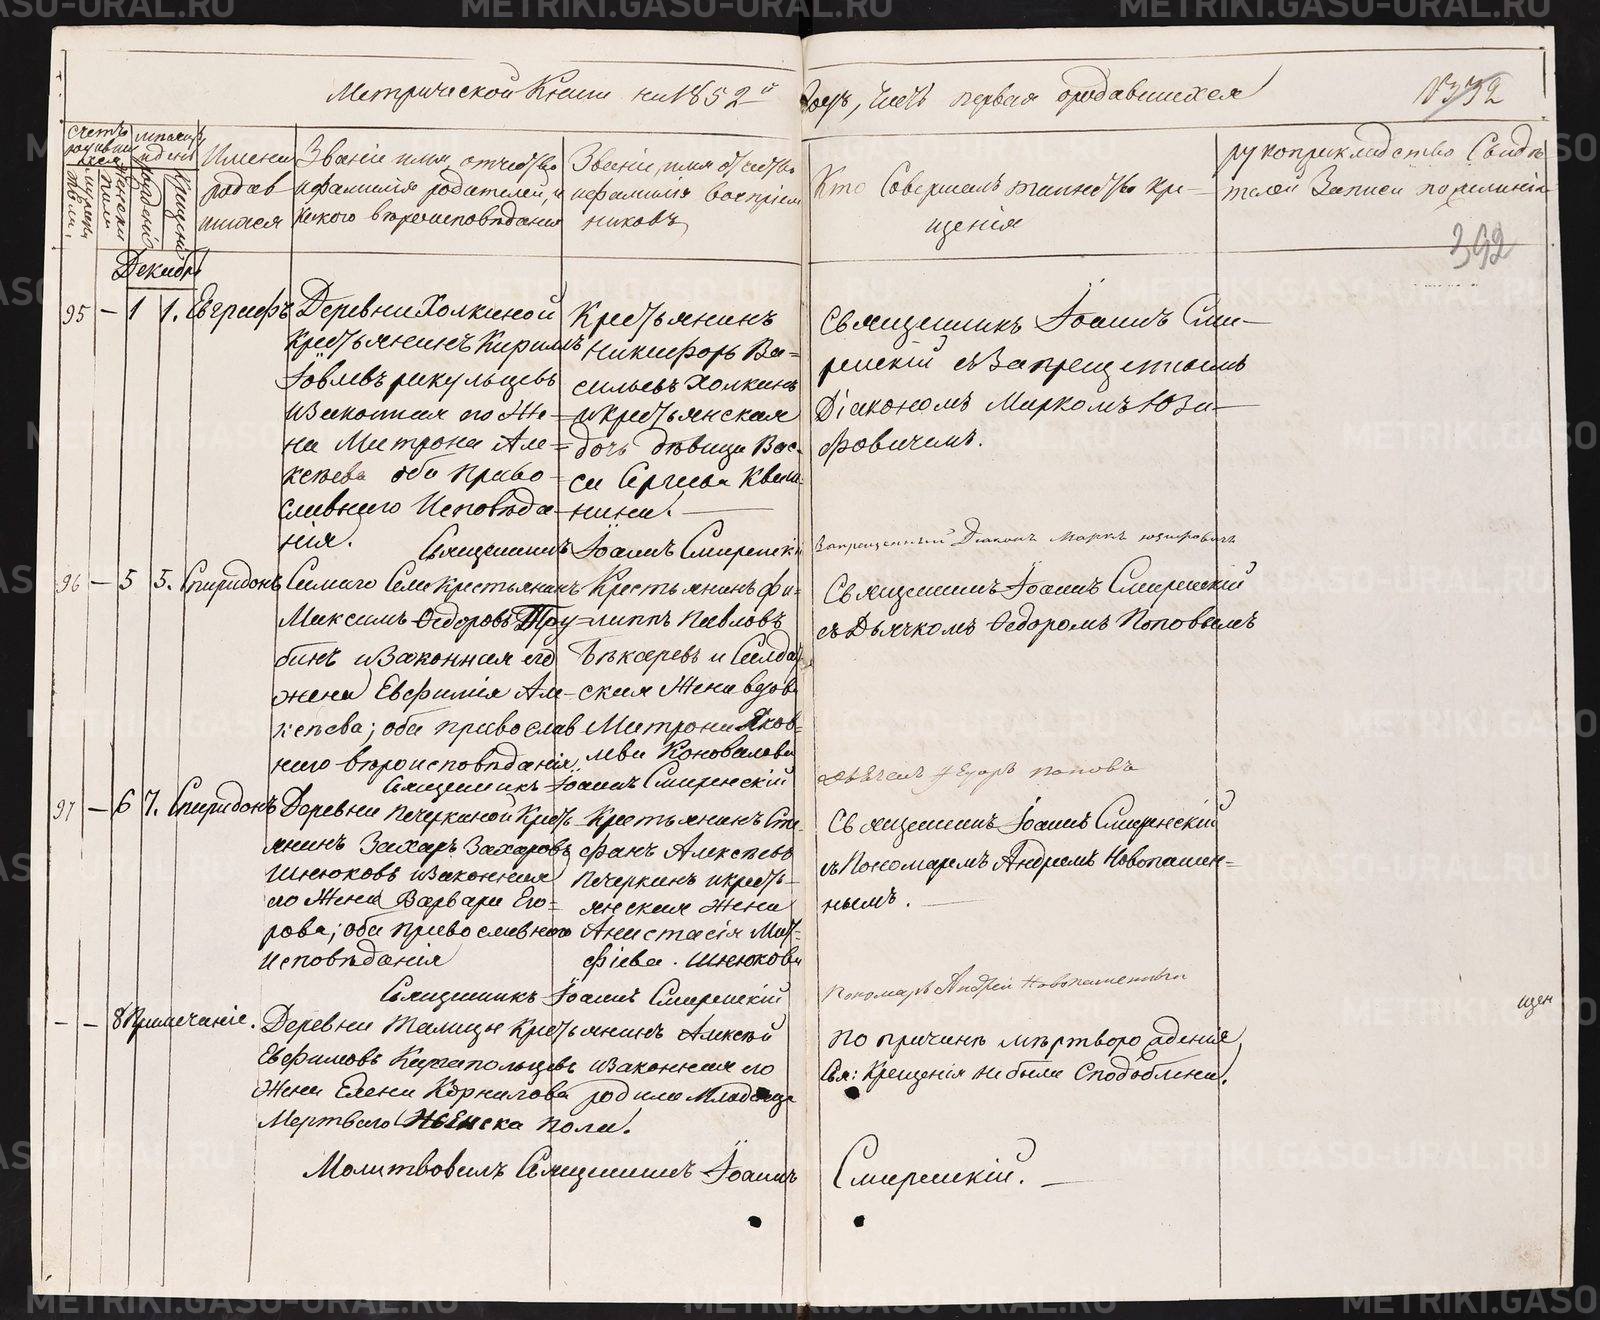 Метрической Книги на 1852й годъ, часть первая о родившихся
392
Счетъ родившихся
мужеска
женска пола
мѣсяцъ и день
рожденія
крещенія
Имена родившихся
Званіе имя, отчество и фамилія родителей, и какого вѣроисповѣданія
Званіе, имя отчество и фамилія воспріемниковъ
Кто Совершалъ таинство крещенія
рукоприкладство Свидѣтелей Записи по желанію
392
Декабрь
95 — 1 1. Евграфъ
Деревни Холкиной
Крестьянинъ Кирилъ
Іовлевъ
и законная его Же=
на Матрона Але=
ксѣева оба Право=
славнаго Исповѣда=
нія.
Крестьянинъ
Никифоръ Ва=
сильевъ Холкинъ
и крестьянская
дочь дѣвица Вас=
са Сергѣева
Священникъ Іоаннъ Смиренскій
Священникъ Іоаннъ Сми—
ренскій съ Запрещеннымъ
Діакономъ Маркомъ Юзи—
фовичемъ.
Запрещенный Діаконъ Маркъ Юзифовичъ
96 — 5 5. Спиридонъ
Самаго Села Крестьянинъ
Максимъ Ѳедоровъ Тру=
бинъ и Законная его
жена Евфимія Але=
ксѣева; оба православ
наго вѣроисповѣданія
Крестьянинъ Фи=
липпъ Павловъ
Бѣкаревъ и Солдат
ская Жена вдова
Матрона Яков=
лева Коновалова
Священникъ Іоаннъ Смиренскій
Священникъ Іоаннъ Смиренскій
съ Дьячкомъ Ѳедоромъ Поповымъ
Дьячекъ Ѳедоръ Поповъ
97 — 6 7. Спиридонъ
Деревни Печеркиной Кресть
янинъ Захаръ Захаровъ
Шнюковъ и законная
его Жена Варвара Его=
рова; оба православнаго
Исповѣданія
Крестьянинъ Сте=
фанъ Алексѣевъ
Печеркинъ и кресть=
янская жена
Анастасія Мат=
фіева. Шнюкова
Священникъ Іоаннъ Смиренскій
Священникъ Іоаннъ Смиренскій
съ Пономаремъ Андреемъ Новопашен=
нымъ.
Пономарь Андрей Новопашенный
— — 8 Примечаніе.
Деревни Талицы Крестьянинъ Алексѣй
Евфимовъ Каргапольцевъ и законная его
Жена Елена Корнилова родила Младенца
Мертваго Женска пола.
По причинѣ мертворожденія
Свя: Крещенія не была Сподоблена.
Молитвовалъ Священникъ Іоаннъ Смиренскій. —
щен
METRIKI.GASU-URAL.RU